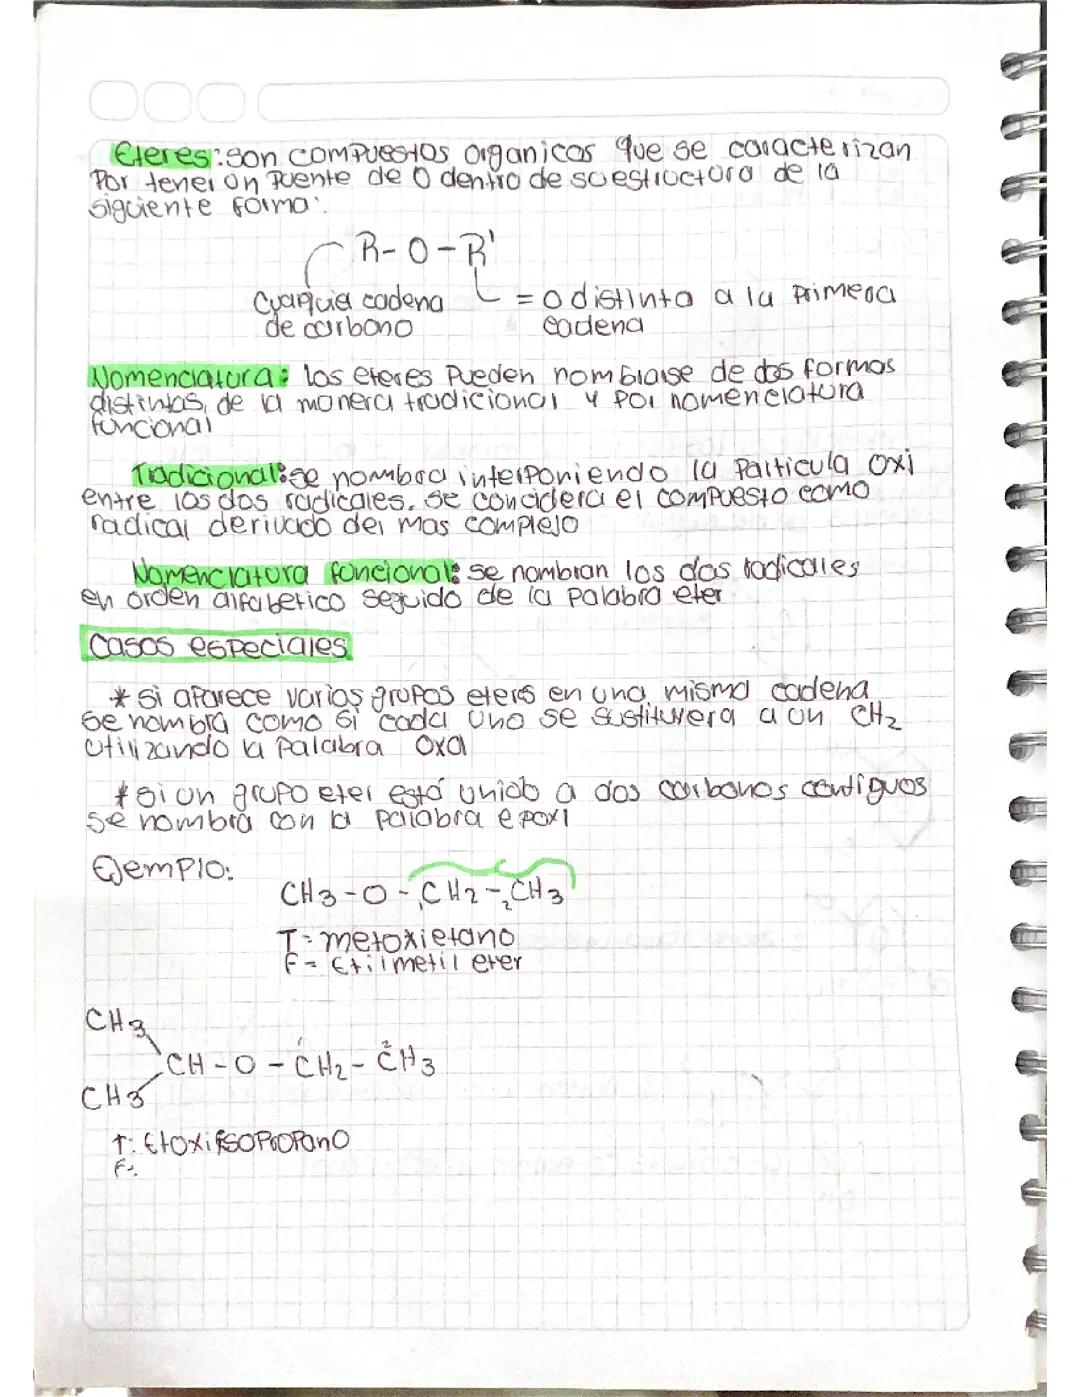 Eteres: son compuestos organicos que se caracterizan
Por tener un puente de O dentro de su estructura de la
siguiente forma:
R-O-R'
Cualquier cadena
de carbono
= o distinta a la primera
cadena
Nomenclatura: los eteres pueden nombrarse de dos formas
distintas, de la manera tradicional y por nomenclatura
funcional
Tradicional: se nombra interponiendo la particula oxi
entre los dos radicales. se concidera el compuesto como
radical derivado del mas complejo
Nomenclatura funcional: se nombran los dos radicales
en orden alfabetico seguido de la palabra eter
Casos especiales
* si aparece varios grupos eters en una misma cadena
se nombra como si cada uno se sustituyera a un CH2
utilizando la palabra oxa
* si un grupo eter está unido a dos carbonos contiguos
se nombra con la palabra epoxi
Ejemplo:
CH3-O-1CH2-2CH3
T= metoxietano
F= Etilmetil eter
CH3
1 2
CH-O-CH2-CH3
CH3
T: Etoxi isopropano
F: